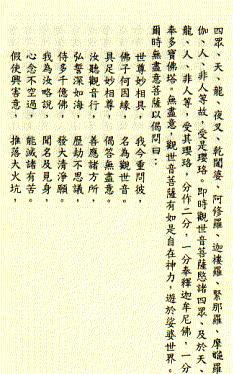 四眾、天、龍、夜叉、乾闥婆、阿修羅、迦樓羅、緊那羅、摩睺羅
伽、人、非人等故，受是瓔珞。即時觀世音菩薩愍諸四眾、及於天、
龍、人、非人等，受其瓔珞，分作二分，一分奉釋迦牟尼佛，一分
奉多寶佛塔。無盡意，觀世音菩薩有如是自在神力，遊於娑婆世界。
爾時無盡意菩薩以偈問曰：
世尊妙相具，　我今重問彼，
佛子何因緣，　名為觀世音。
具足妙相尊，　偈答無盡意，
汝聽觀音行，　善應諸方所，
弘誓深如海，　歷劫不思議，
侍多千億佛，　發大清淨願。
我為汝略說，　聞名及見身，
心念不空過，　能滅諸有苦。
假使興害意，　推落大火坑，